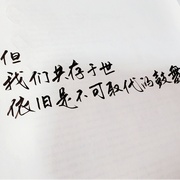 但
我们共存于世
依旧是不可取代的鼓舞